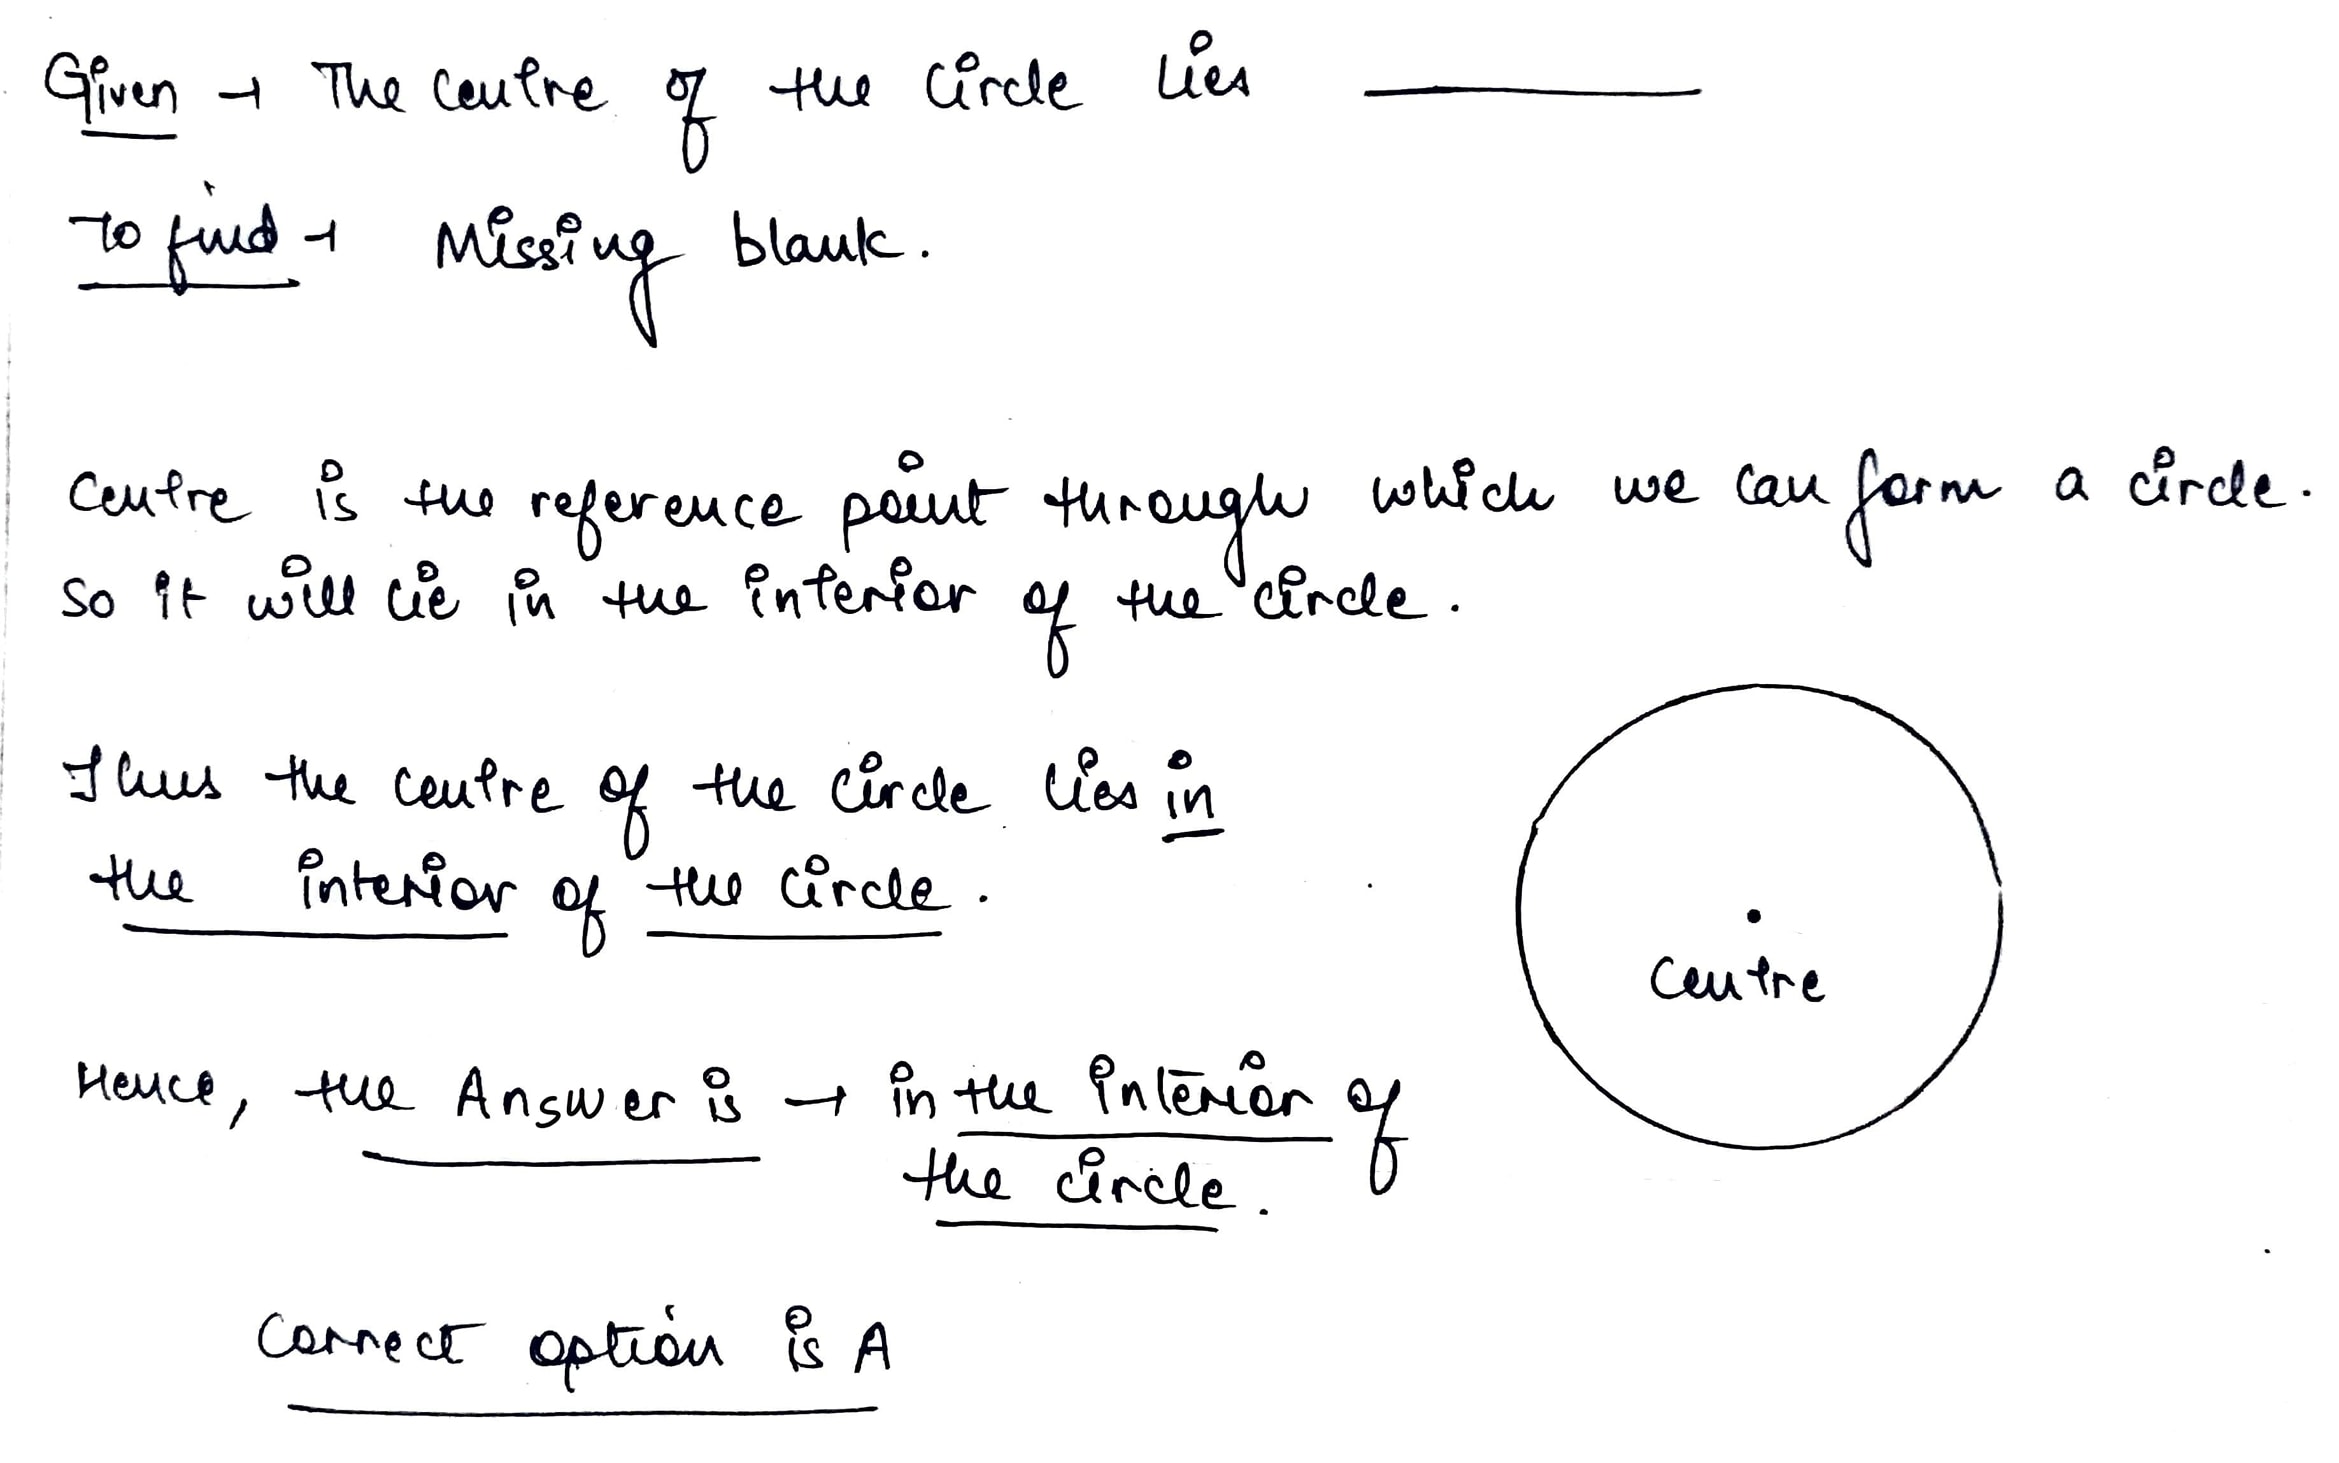 Given → The Centre of the Circle lies ________
To find → Missing blank.
Centre is the reference point through which we can form a circle.
So it will lie in the interior of the circle.
Thus the centre of the circle lies in
the interior of the circle.
Centre
Hence, the Answer is → in the interior of
the circle.
Correct option is A